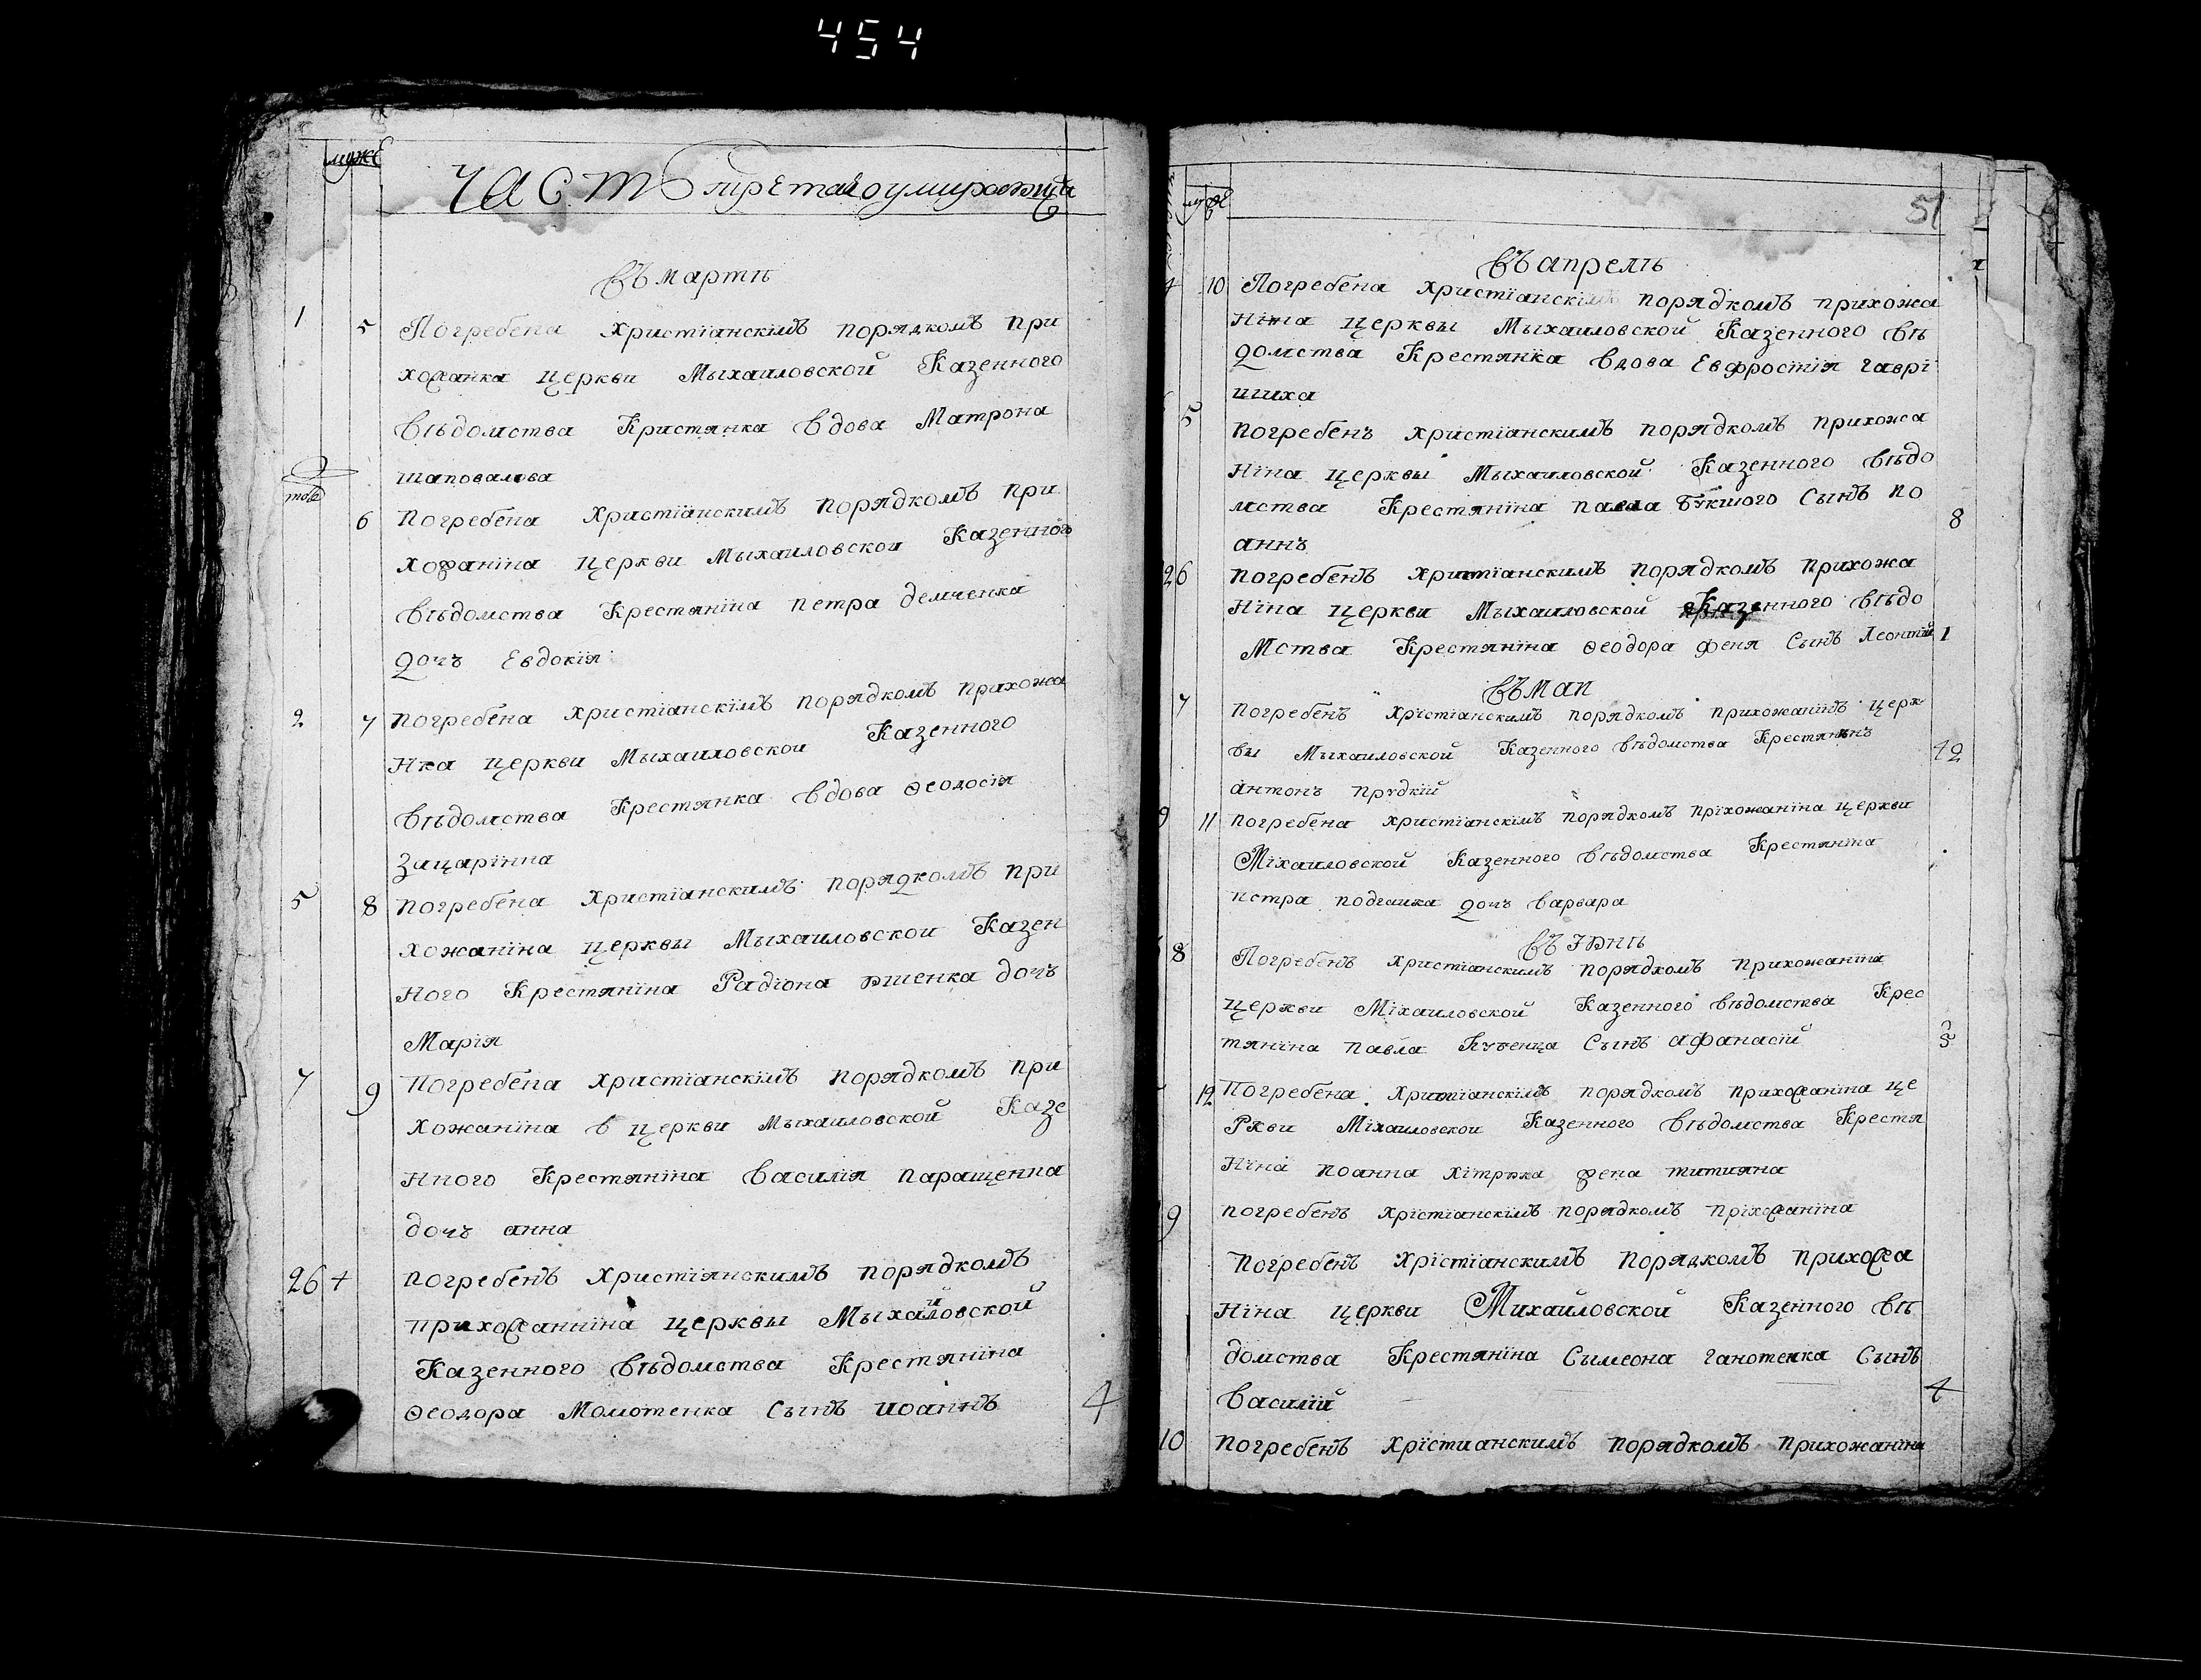 454
муже
ЧАСТЬ третая о умирающи
Въ мартѣ
1 5 Погребена христіанскімъ порядкомъ при
хожанка церкви Мыхаиловской Казенного
вѣдомства Кристянка вдова Матрона
шаповалова
тог
6 Погребена христіанскимъ порядкомъ при
хожаніна церкви Мыхаиловскои Казенного
вѣдомства Крестяніна петра демченка
дочъ Евдокія
2 7 погребена христіанскімъ порядкомъ прихожа
нка церкви Мыхаиловскои Казенного
вѣдомства Крестянка вдова Ѳеодосія
Зацарінна
5 8 погребена христіанскимъ порядкомъ при
хожаніна церквы Мыхаиловскои Казен
ного Крестяніна Радіона юшенка дочъ
Марія
7 9 Погребена христіанскімъ порядкомъ при
хожаніна в церкви Мыхаиловской Казе
нного Крестяніна василія паращенна
дочъ анна
26 4 погребенъ христіянскимъ порядкомъ
прихожанніна церквы Мыхайловской
Казенного вѣдомства Крестяніна
Ѳеодора Момотенка сынъ иоаннъ 4
51
Въ апрелѣ
4 10 Погребена христіанскімъ порядкомъ прихожа
ніна церквы Мыхаиловской Казенного вѣ
домства Крестянка вдова Евфростія гаврі
шиха
5 погребенъ христіанскимъ порядкомъ прихожа
ніна церквы Мыхаиловской Казенного вѣдо
мства Крестяніна павла Букшого сынъ по 8
аннъ
26 погребенъ христіанскимъ порядкомъ прихожа
ніна церкви Мыхаиловской Казенного вѣдо
мства Крестяніна Ѳеодора феня сынъ Леонтий 1
Въ маи
7 погребенъ хрістіанскимъ порядкомъ прихожанінъ церк
вы Мыхаиловской Казенного вѣдомства Крестянинъ 42
антонъ прудкій
9 11 погребена христіанскімъ порядкомъ пріхожаніна церкви
Міхаиловской Казенного вѣдомства Крестяніна
петра подгаика дочъ варвара
Въ Июнѣ
8 Погребенъ христіанскимъ порядкомъ прихожаніна
церкви Міхаиловской Казенного вѣдомства Крес
тяніна павла Кученца сынъ афанасій 3
12 Погребена христіанскімъ порядкомъ прихожаніна це
ркви Міхаиловскои Казенного вѣдомства Крестя
ніна иоанна хітрюка жена титияна
9 погребенъ хрістіанскімъ порядкомъ пріхожаніна
погребенъ хрістіанскимъ порядкомъ прихожа
ніна церкви Михайловской Казенного вѣ
домства Крестяніна Сымеона ганотенка сынъ
василій 4
10 погребенъ хрістианскимъ порядкомъ прихожаніна